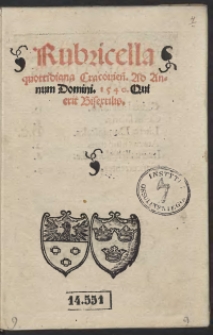 Rubricella
quottidiana Cracovieñ. Ad An-
num Domini. 1540. Qui
erit Bisextilis.
14.551